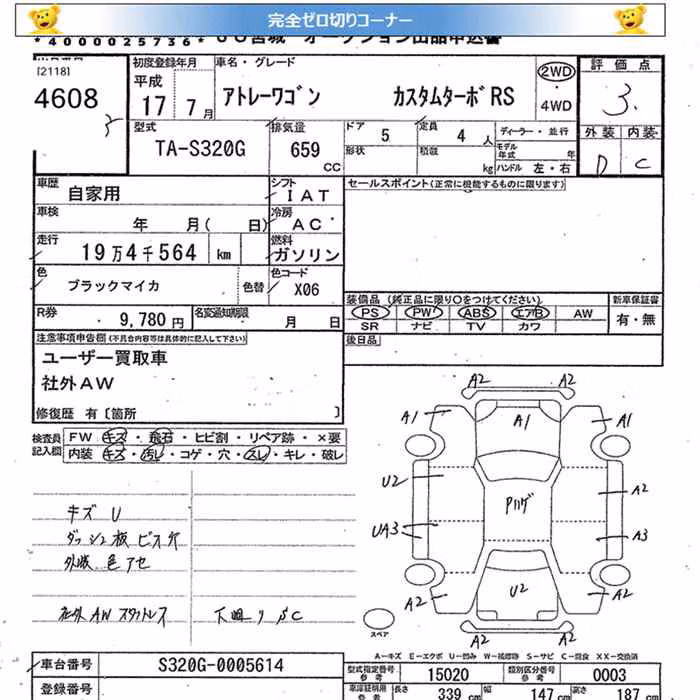 完全ゼロ切りコーナー
*4000025736* オークション出品申込書
[2118]
4608
初度登録年月
平成
17 7月
車名・グレード
アトレーワゴン カスタムターボRS
2WD
・
4WD
評価点
3.
外装 内装
D C
型式
TA-S320G
排気量
659
CC
ドア 5
形状
定員 4 人
積載 kg
ディーラー・並行
モデル年式 年
ハンドル 左・右
車歴 自家用
シフト IAT
セールスポイント(正常に機能するものに限ります)
車検 年 月( 日)
冷房 AC
走行 19万4千564 km
燃料 ガソリン
色 ブラックマイカ
色替
色コード X06
装備品 (純正品に限り○をつけてください)
新車保証書
PS PW ABS エアB AW
有・無
SR ナビ TV カワ
R券 9,780円
名変通知期限 月 日
後日品
注意事項申告欄(不具合内容等は具体的に記入して下さい)
ユーザー買取車
社外AW
修復歴 有〔箇所 〕
検査員記入欄
FW キズ・飛石・ヒビ割・リペア跡・×要
内装 キズ・汚レ・コゲ・穴・スレ・キレ・破レ
キズ U
ダッシュ板 ビス穴
外装 色アセ
社外AWスタットレス
下廻りSC
A2 A2
A1 A1 A1
U2 Pハゲ A2
UA3 A3
A2 U2 A2
A2 A2
スペア
A-キズ E-エクボ U-凹み W-補修跡 S-サビ C-腐食 XX-交換済
車台番号 S320G-0005614
登録番号
型式指定番号 参考 15020
類別区分番号 参考 0003
車庫証明用 参考 長さ 339 cm 幅 147 cm 高さ 187 cm